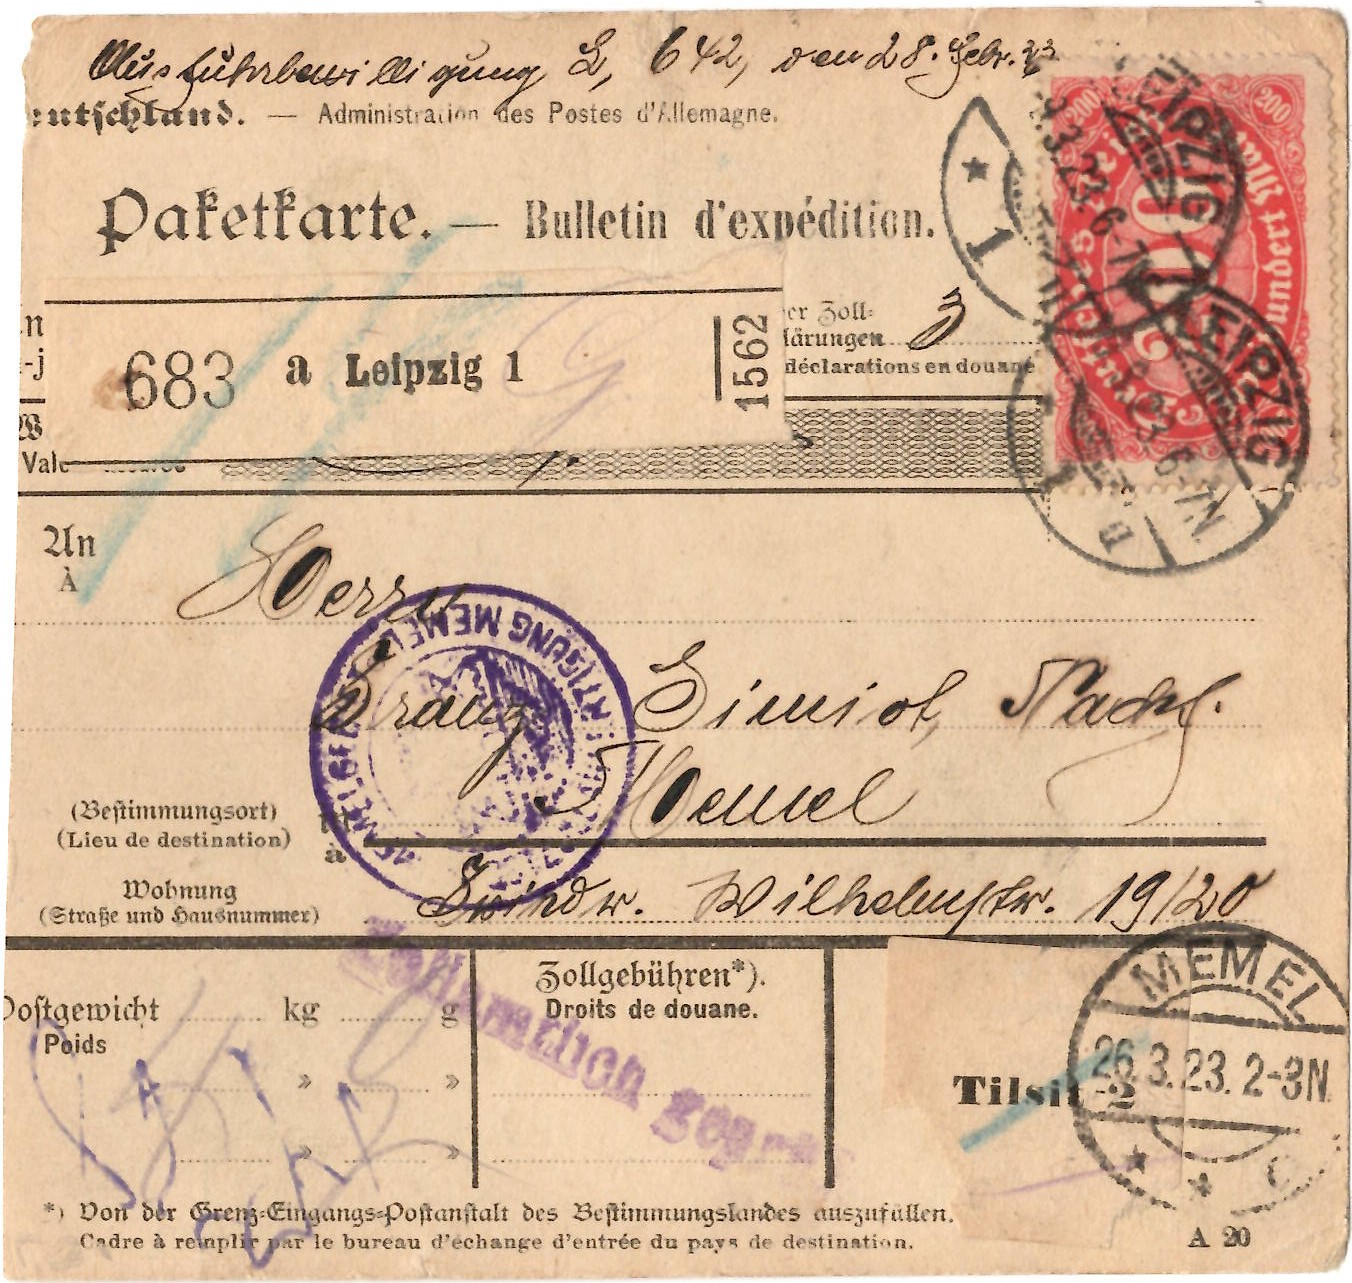 Ausfuhrbewilligung L, 642, den 28. Febr. 23
eutschland. — Administration des Postes d'Allemagne.
Paketkarte. — Bulletin d'expédition.
200 200
LEIPZIG
* 1
683 a Leipzig 1 1562
er Zoll=
lärungen 3
déclarations en douane
W
Vale
LEIPZIG
An
À
Herrn
Franz Simiot, Nachf.
Memel
(Bestimmungsort)
(Lieu de destination)
à
Wohnung
(Straße und Hausnummer)
Wilhelmstr. 19/20
Zollamtlich
Postgewicht kg g
Poids
» »
» »
Zollgebühren*).
Droits de douane.
Tilsit -2
MEMEL
26.3.23. 2-3N.
* *
*) Von der Grenz=Eingangs=Postanstalt des Bestimmungslandes auszufüllen.
Cadre à remplir par le bureau d'échange d'entrée du pays de destination.
A 20